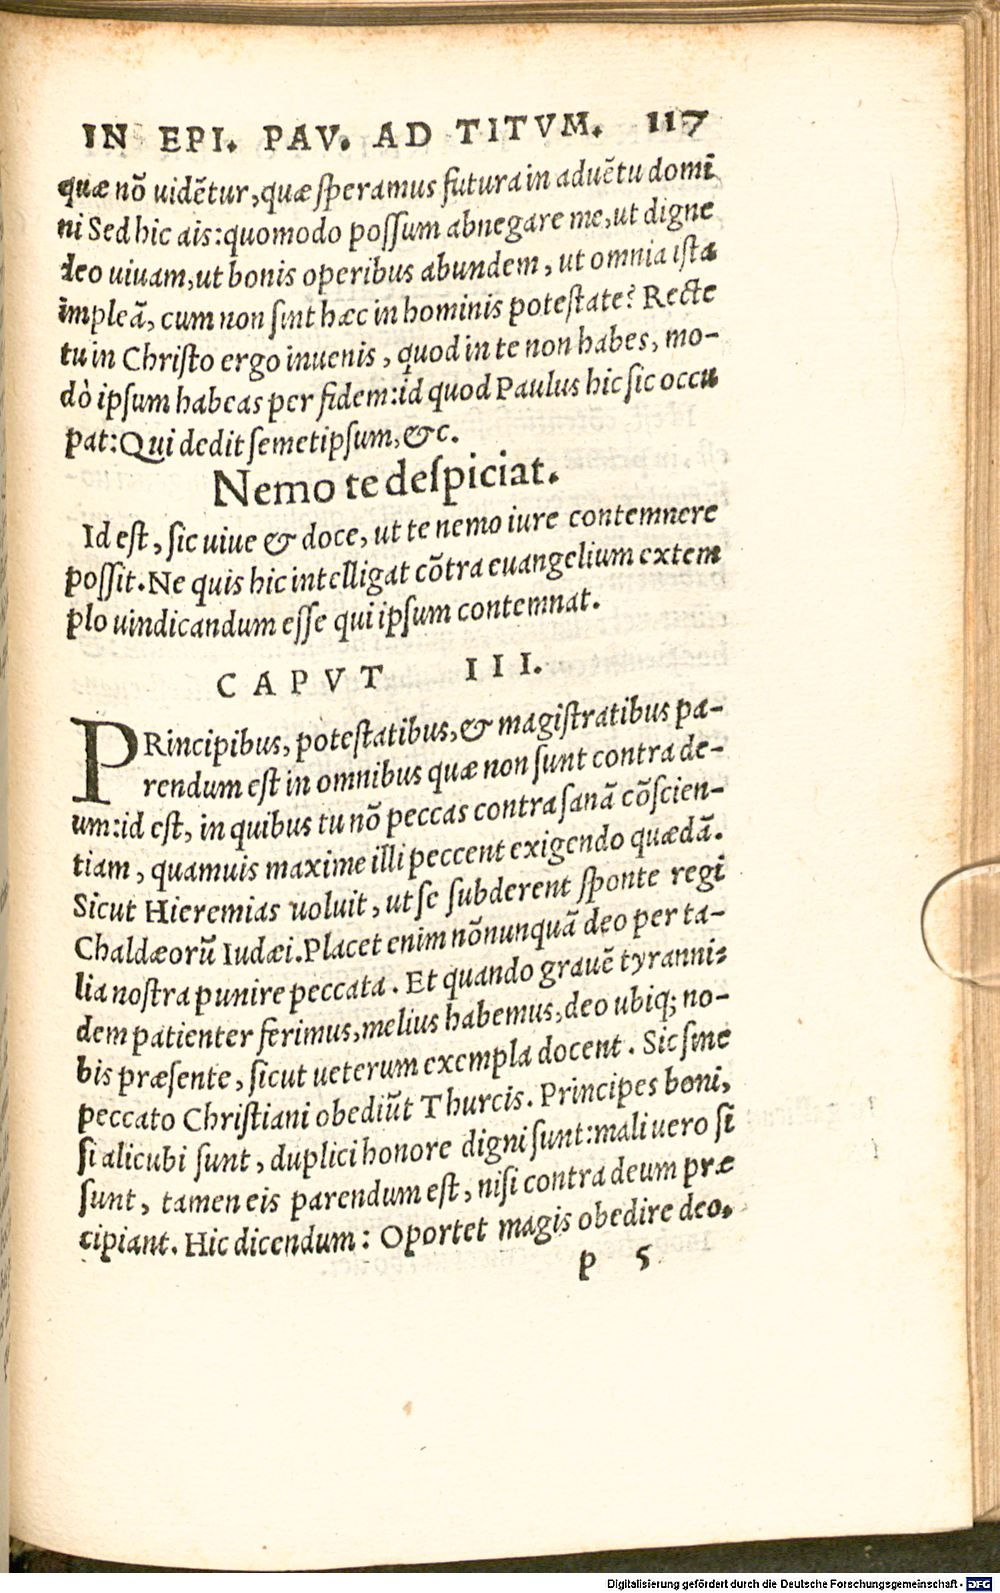 IN EPI. PAV. AD TITVM. 117
quæ nõ uidẽtur, quæ ſperamus futura in aduẽtu domi
ni Sed hic ais: quomodo poſſum abnegare me, ut digne
deo uiuam, ut bonis operibus abundem, ut omnia iſta
impleã, cum non ſint hæc in hominis poteſtate? Recte
tu in Chriſto ergo inuenis, quod in te non habes, mo-
dò ipſum habeas per fidem: id quod Paulus hic ſic occu
pat: Qui dedit ſemetipſum, &c.
Nemo te deſpiciat.
Id eſt, ſic uiue & doce, ut te nemo iure contemnere
poſſit. Ne quis hic intelligat cõtra euangelium extem
plo uindicandum eſſe qui ipſum contemnat.
CAPVT III.
PRincipibus, poteſtatibus, & magiſtratibus pa-
rendum eſt in omnibus quæ non ſunt contra de-
um: id eſt, in quibus tu nõ peccas contra ſanã cõſcien-
tiam, quamuis maxime illi peccent exigendo quædã.
Sicut Hieremias uoluit, ut ſe ſubderent ſponte regi
Chaldæorũ Iudæi. Placet enim nõnunquã deo per ta-
lia noſtra punire peccata. Et quando grauẽ tyranni-
dem patienter ferimus, melius habemus, deo ubiq; no-
bis præſente, ſicut ueterum exempla docent. Sic ſine
peccato Chriſtiani obediũt Thurcis. Principes boni,
ſi alicubi ſunt, duplici honore digni ſunt: mali uero ſi
ſunt, tamen eis parendum eſt, niſi contra deum præ
cipiant. Hic dicendum: Oportet magis obedire deo,
p 5
Digitalisierung gefördert durch die Deutsche Forschungsgemeinschaft - DFG